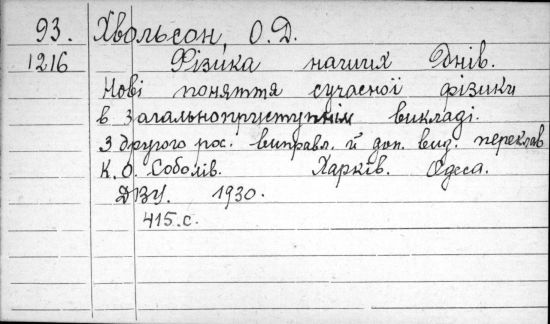 93. Хвольсон, О.Д.
1216 Фізика наших Днів.
Нові поняття сучасної фізики
в загальноприступнім викладі.
З другого рос. виправл. й доп. вид. переклав
К.О. Соболів. Харків. Одеса.
ДВУ. 1930.
415.с.